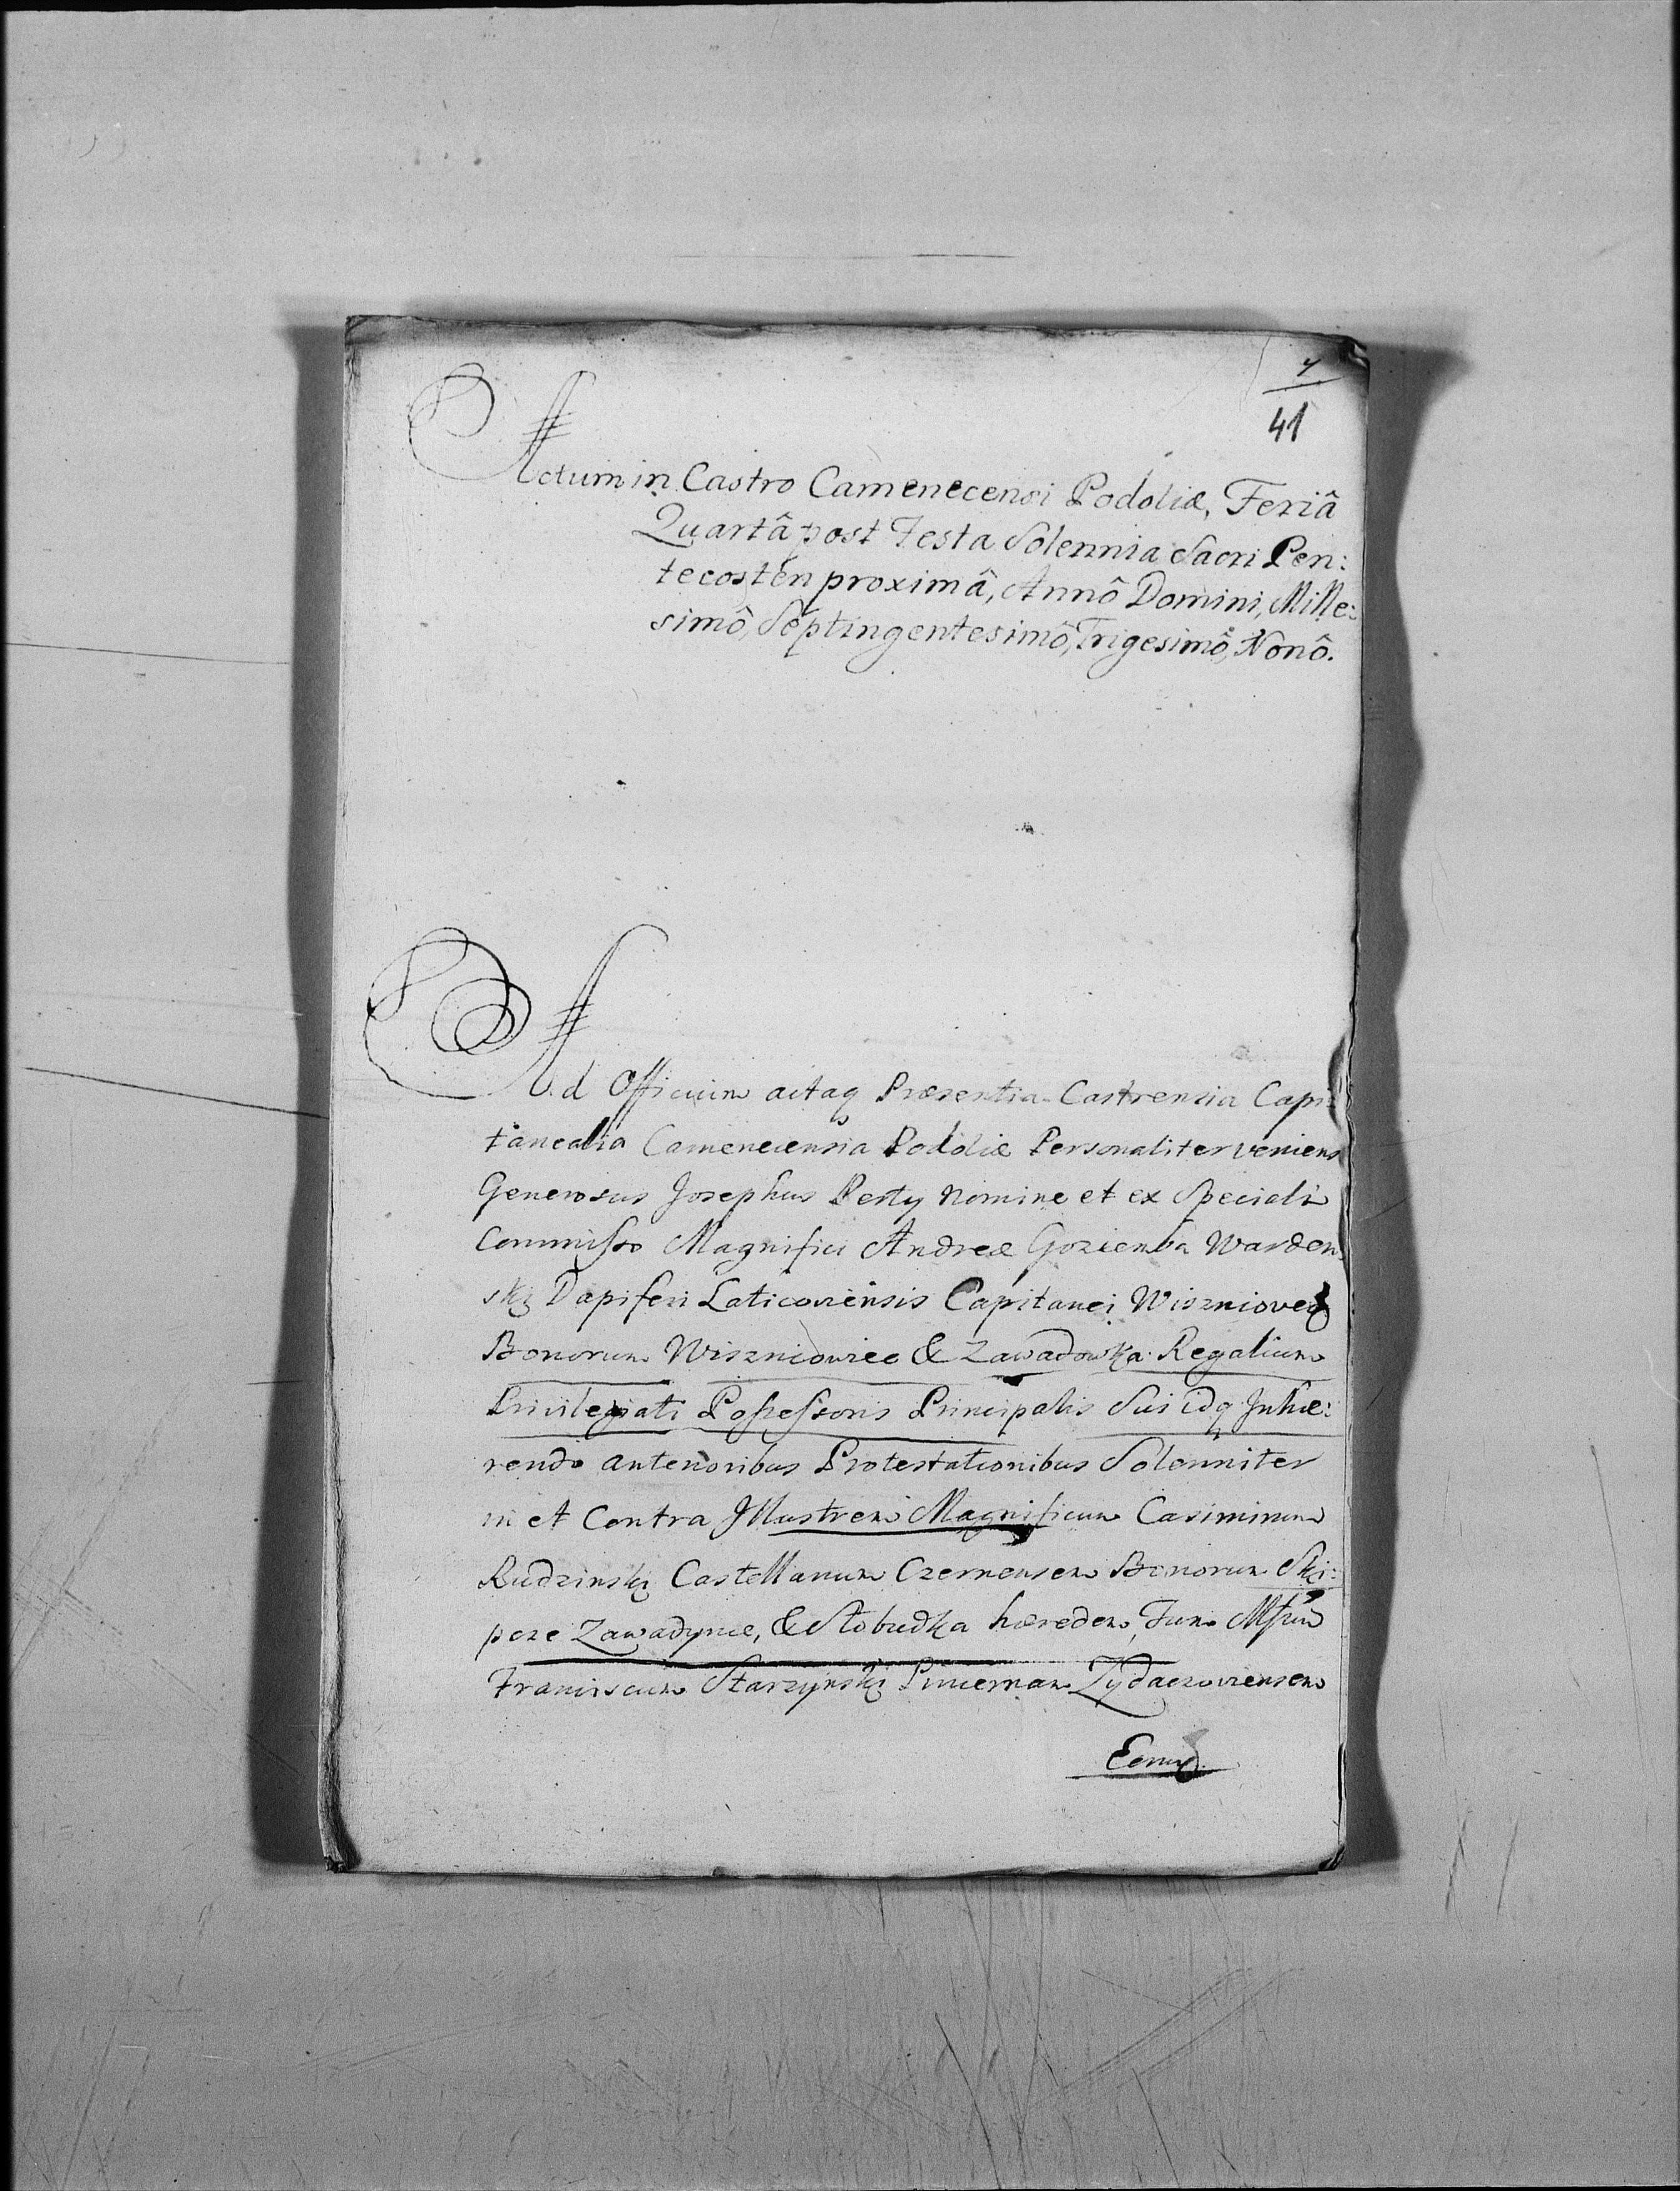 7
41
Actum in Castro Camenecensi Podoliæ, Feriâ
Quartâ post Festa Solennia Sacri Pen:
tecosten proximâ, Annô Domini, Mille:
simô, Septingentesimô, Trigesimô, Nonô.
Ad Officium actaq Præsentia Castrensia Capi:
taneália Camenecensia Podoliæ Personaliter veniens
Generosus Josephus Perty Nomine et ex Speciali
Commisso Magnifici Andreæ Goziemba Warden:
ski Dapiferi Laticoviensis Capitanei Wisznioveç
Bonorum Wiszniowiec & Zawadowka Regalium
Privilegiati Possessoris Principalis Sui idq Inhæ:
rendo anterioribus Protestationibus Solenniter
in et Contra Illustrem Magnificum Casimirum
Rudzinski Castellanum Czernensem Bonorum Ski:
pcze Zawadynce, & Słobudka hæredem, Tum
Franciscum Starzynski Pincernam Zydaczoviensem